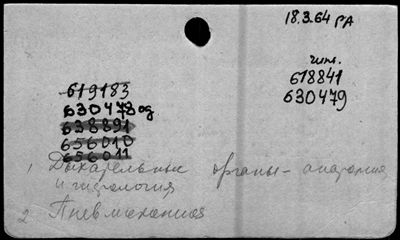 18.3.64 РА
чит.
618841
630479
619183
630478 од
638891
656010
656011
1 Дыхательные органы - анатомия
и гистология
2 Пневмоханиоз